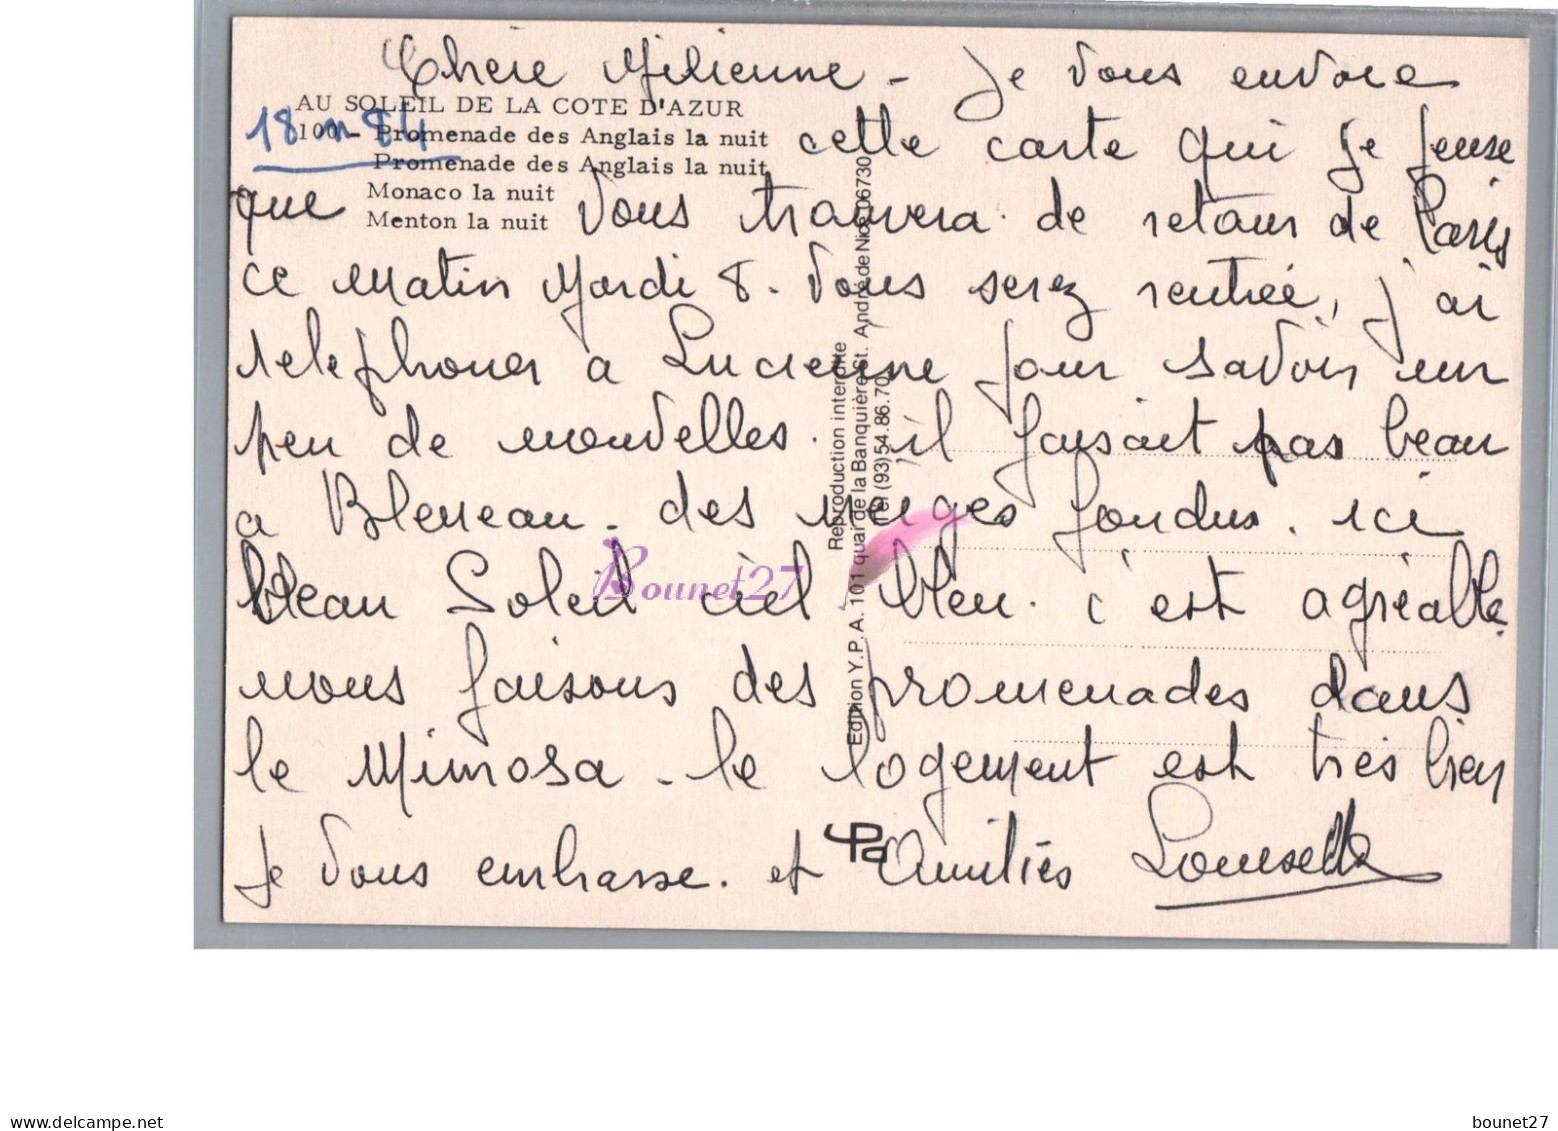 Cherie Milienne - Je vous envoie
AU SOLEIL DE LA COTE D'AZUR
18 84
100 - Promenade des Anglais la nuit
cette carte qui je pense
Promenade des Anglais la nuit
Monaco la nuit
Menton la nuit
que vous trouvera de retour de Paris
ce matin Mardi 8. Vous serez rentrée, j'ai
telephoner a Lucienne pour savoir un
peu de nouvelles. il faisait pas beau
a Bleneau. des neiges fondus. ici
beau Soleil ciel bleu. c'est agréable.
nous faisons des promenades dans
le Mimosa - le logement est très bien
Je vous embrasse. et Amitiés Louisette
Reproduction interdite
Edition Y.P.A. 101 quai de la Banquière St. André de Nice 06730
Tel (93) 54.86.70
YPA
Bounet27
www.delcampe.net
bounet27